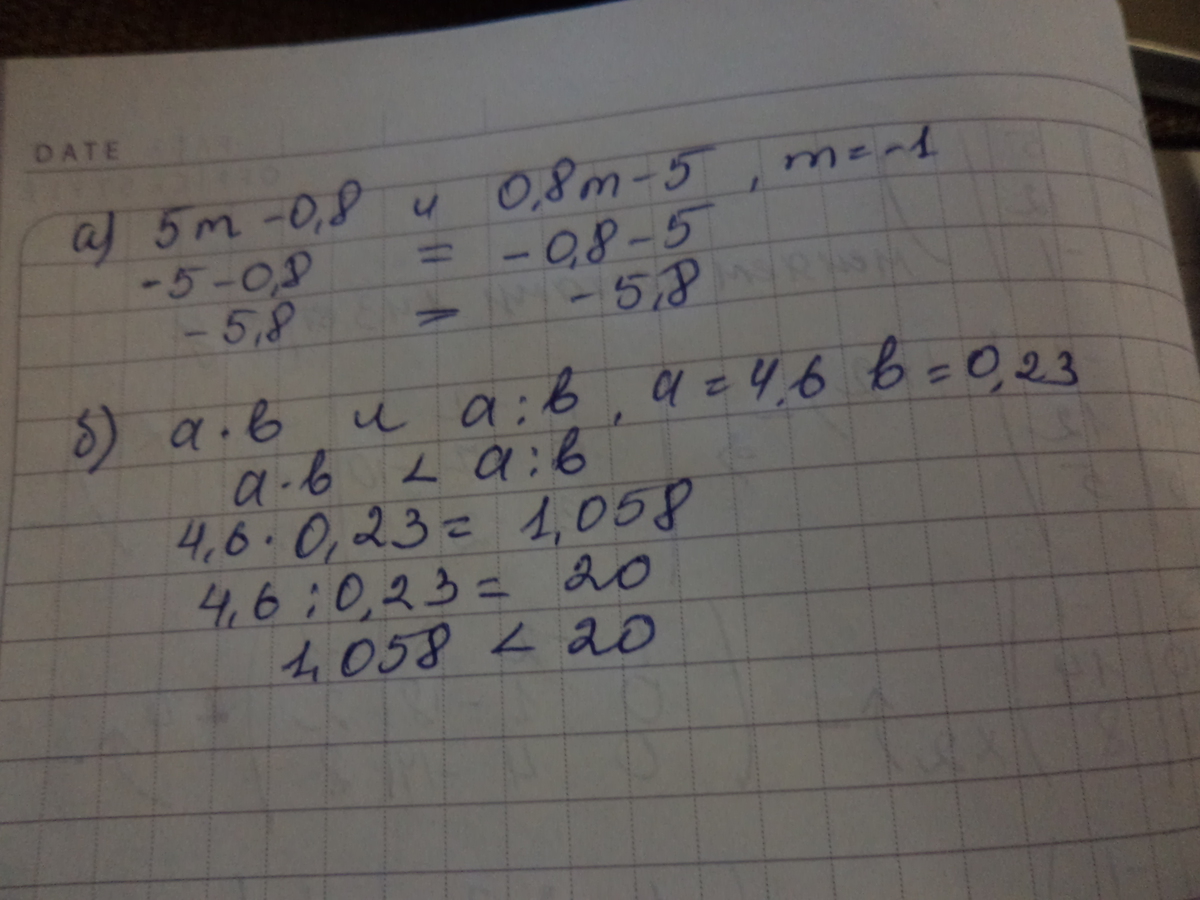 DATE
а) 5m - 0,8 и 0,8m - 5 , m = -1
-5 - 0,8 = -0,8 - 5
-5,8 = -5,8
б) a · b и a : b , a = 4,6 b = 0,23
a · b < a : b
4,6 · 0,23 = 1,058
4,6 : 0,23 = 20
1,058 < 20